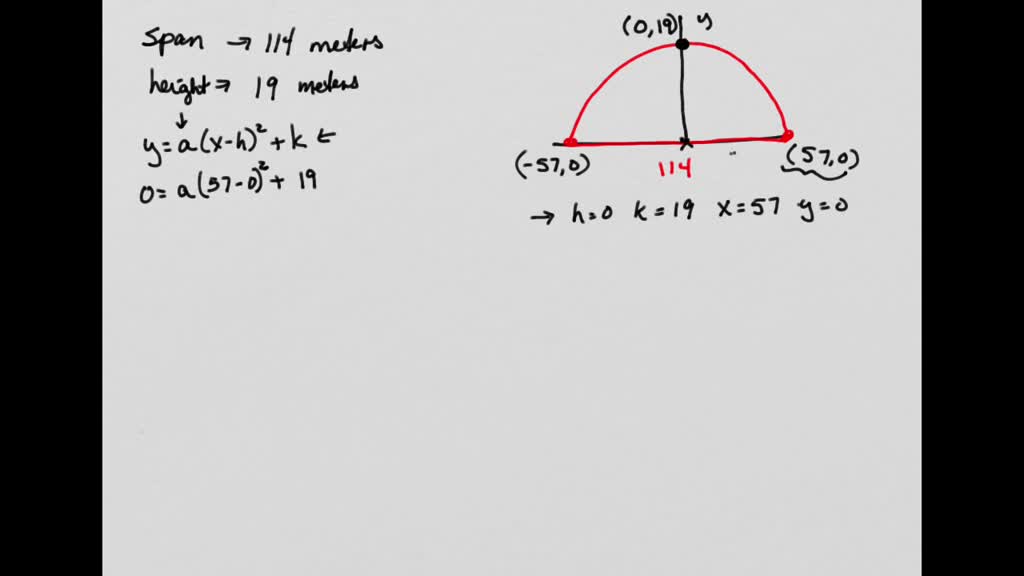 span → 114 meters
height → 19 meters
↓
y = a(x-h)² + k ←
0 = a(57-0)² + 19
(0,19) y
(-57,0) 114 (57,0)
→ h=0 k=19 x=57 y=0